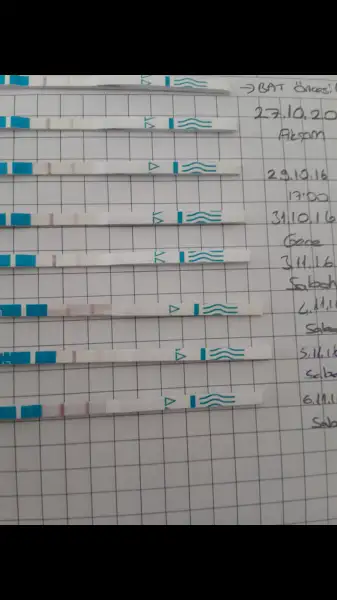 → BAT Öncesi
27.10.20
Akşam
29.10.16
17:00
31.10.16
Gece
3.11.16
Sabah
4.11.1
Saba
5.11.16
Saba
6.11.1
Sab